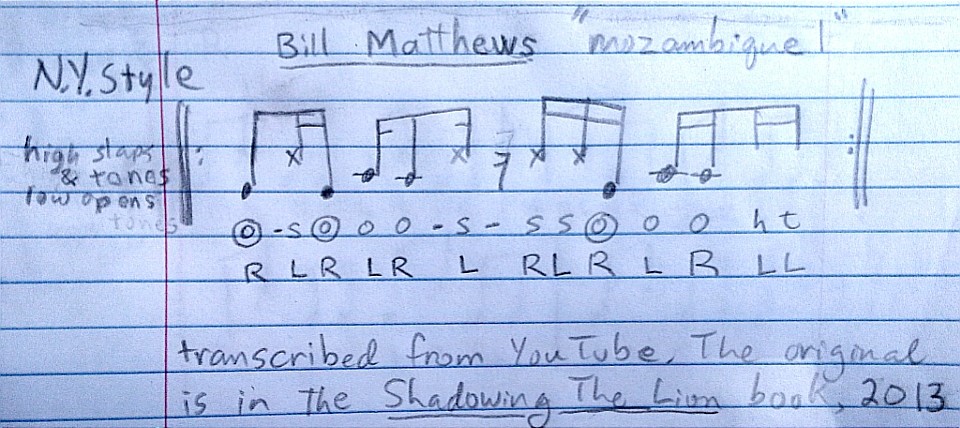 Bill Matthews "mozambique 1"
N.Y. Style
high slaps
& tones
low opens
tones
◎ - s ◎ o o - s - s s ◎ o o h t
R L R L R L R L R L R L L
transcribed from YouTube. The original
is in the Shadowing The Lion book, 2013